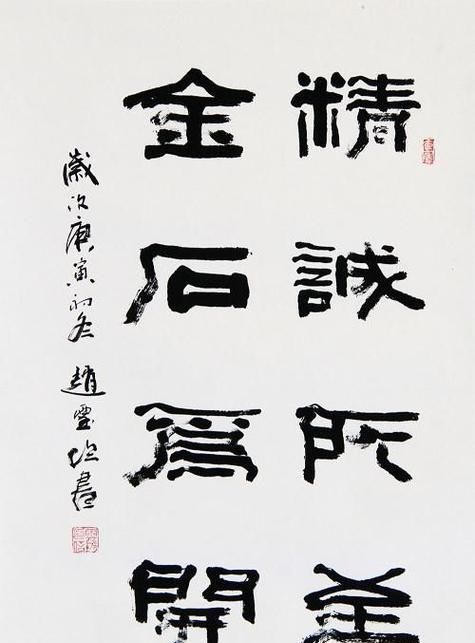 精誠所至
金石為開
歲次庚寅初冬 趙書